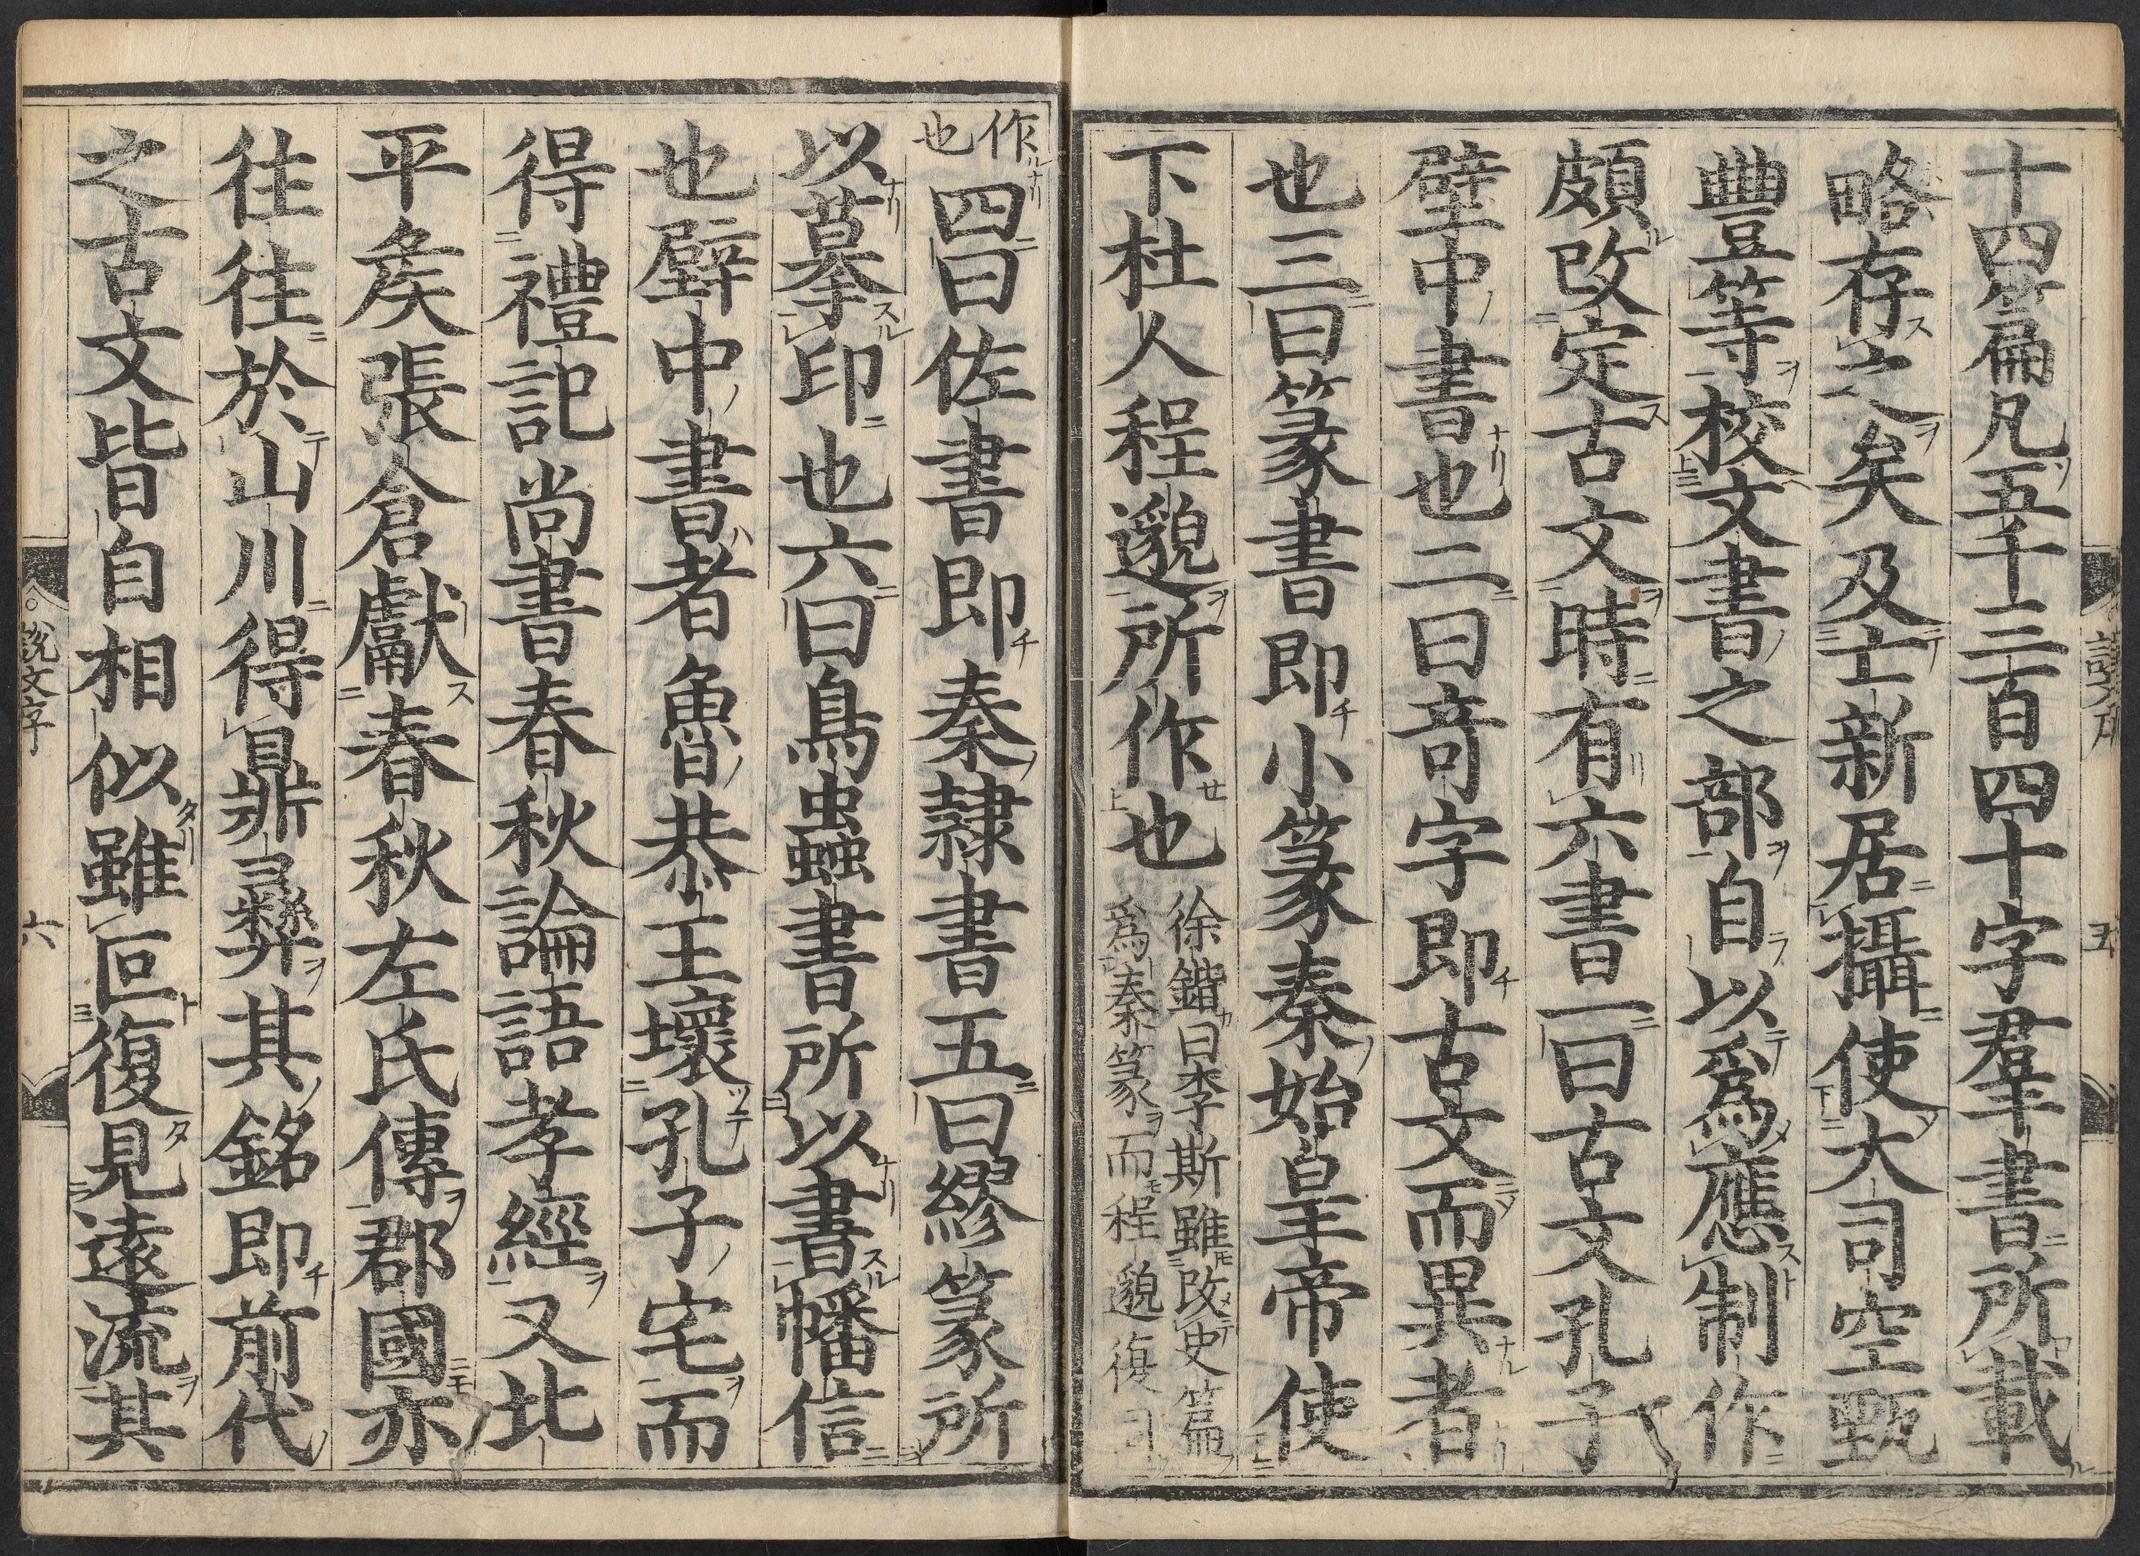 十四篇凡五千三百四十字羣書所載
略存之矣及亡新居攝使大司空甄
豐等校文書之部自以爲應制作
頗改定古文時有六書一曰古文孔子
壁中書也二曰竒字即古文而異者
也三曰篆書即小篆秦始皇帝使
下杜人程邈所作也
徐鍇曰李斯雖改史篇
爲秦篆而程邈復同
作也
四曰佐書即秦隸書五曰繆篆所
以摹印也六曰鳥蟲書所以書幡信
也壁中書者魯恭王壞孔子宅而
得禮記尚書春秋論語孝經又北
平矦張倉獻春秋左氏傳郡國亦
往往於山川得鼎彝其銘即前代
之古文皆自相似雖叵復見遠流其
說文序
六
五